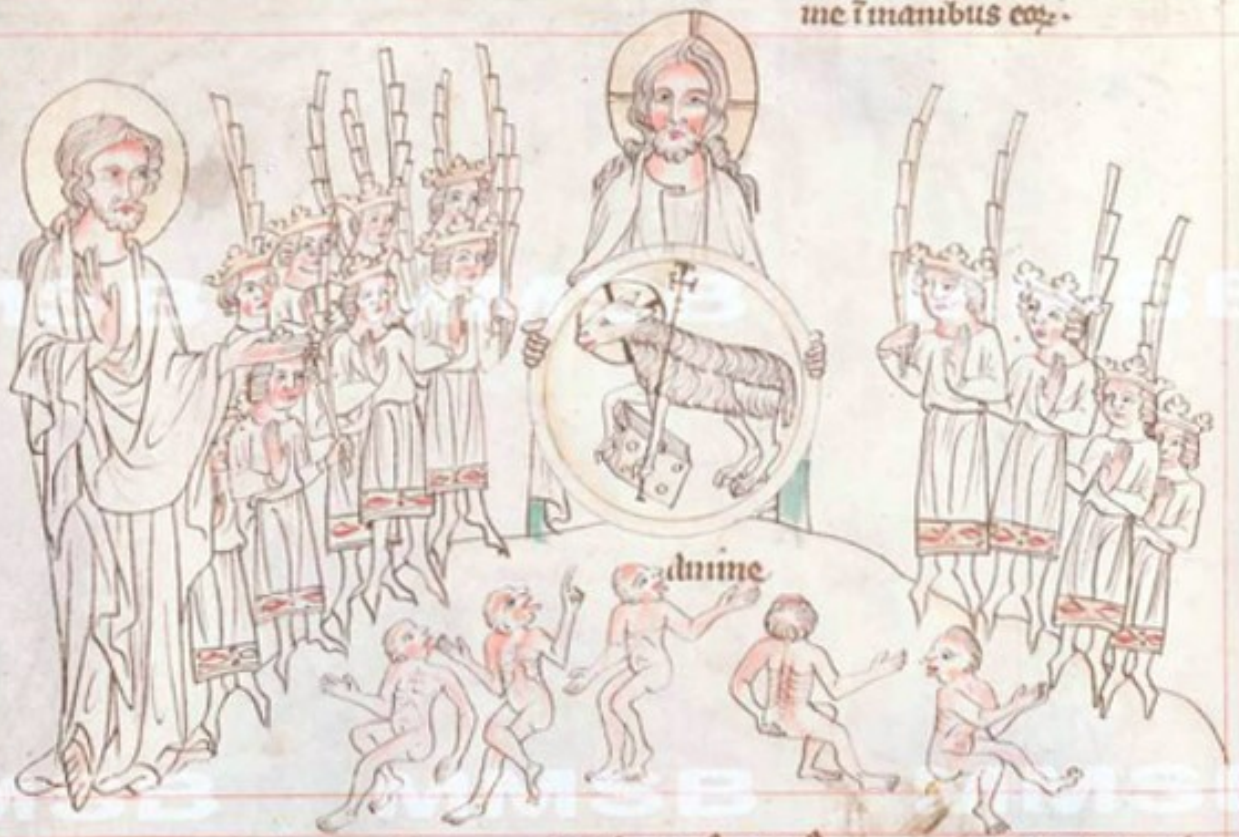 me ī manibus eoꝝ.
anime